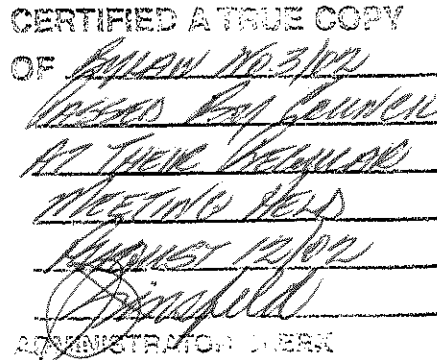 CERTIFIED A TRUE COPY
OF BYLAW No. 3/02
PASSED BY COUNCIL
AT THEIR REGULAR
MEETING HELD
AUGUST 12/02
ADMINISTRATOR CLERK